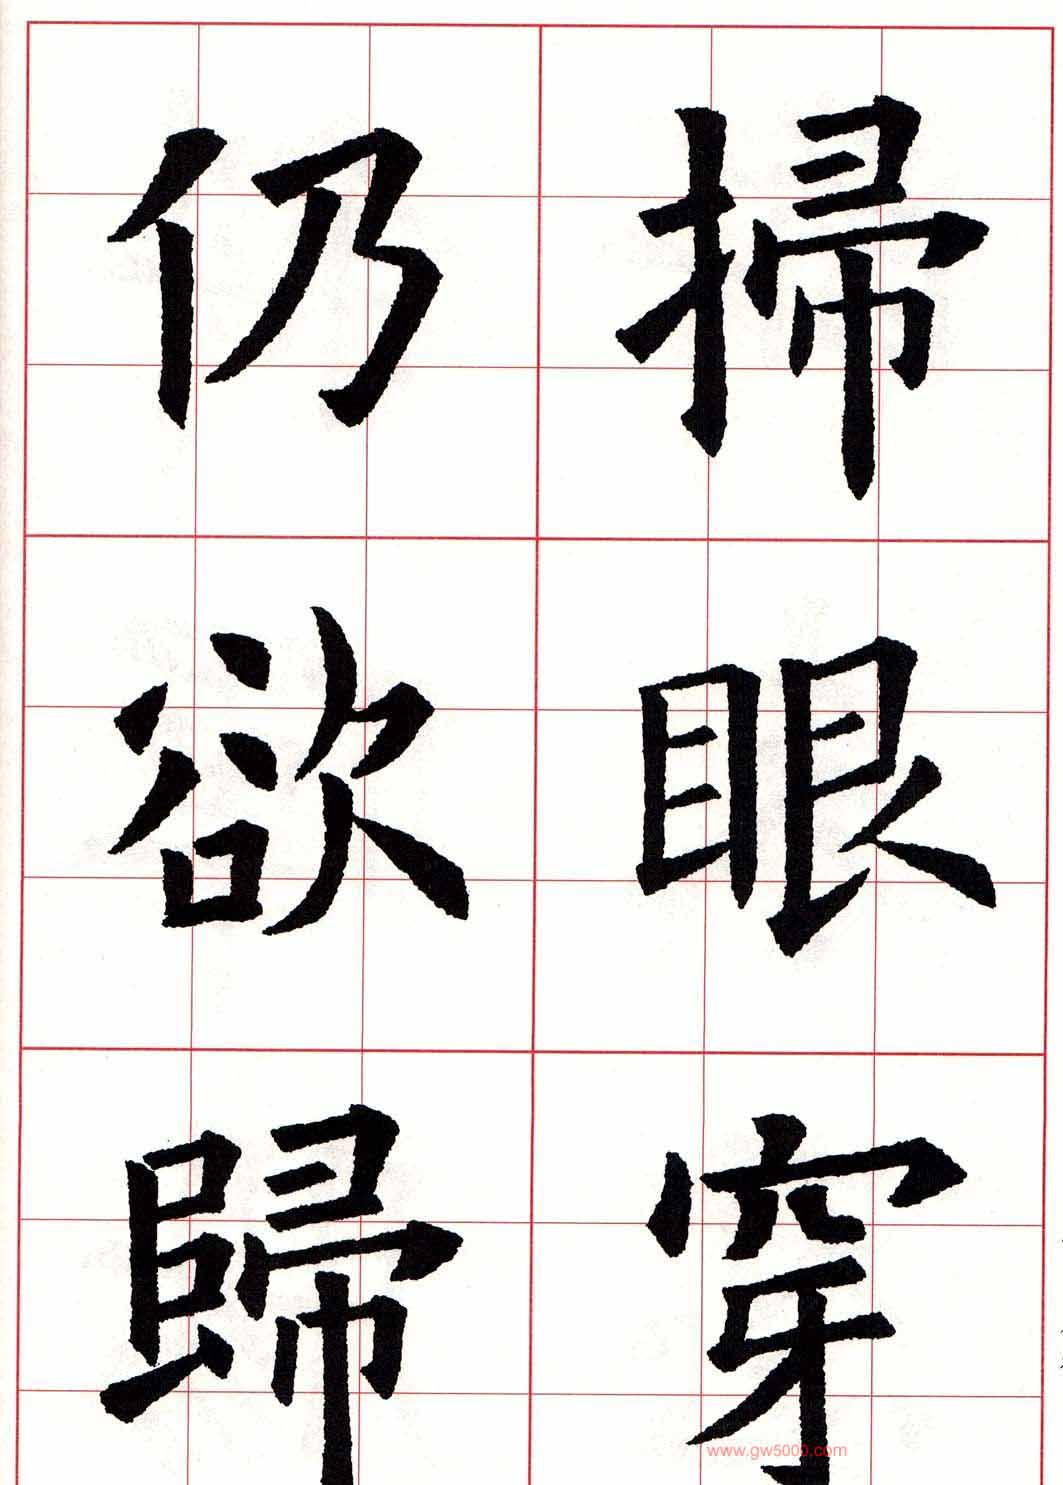 掃眼穿
仍欲歸
www.gw5000.com